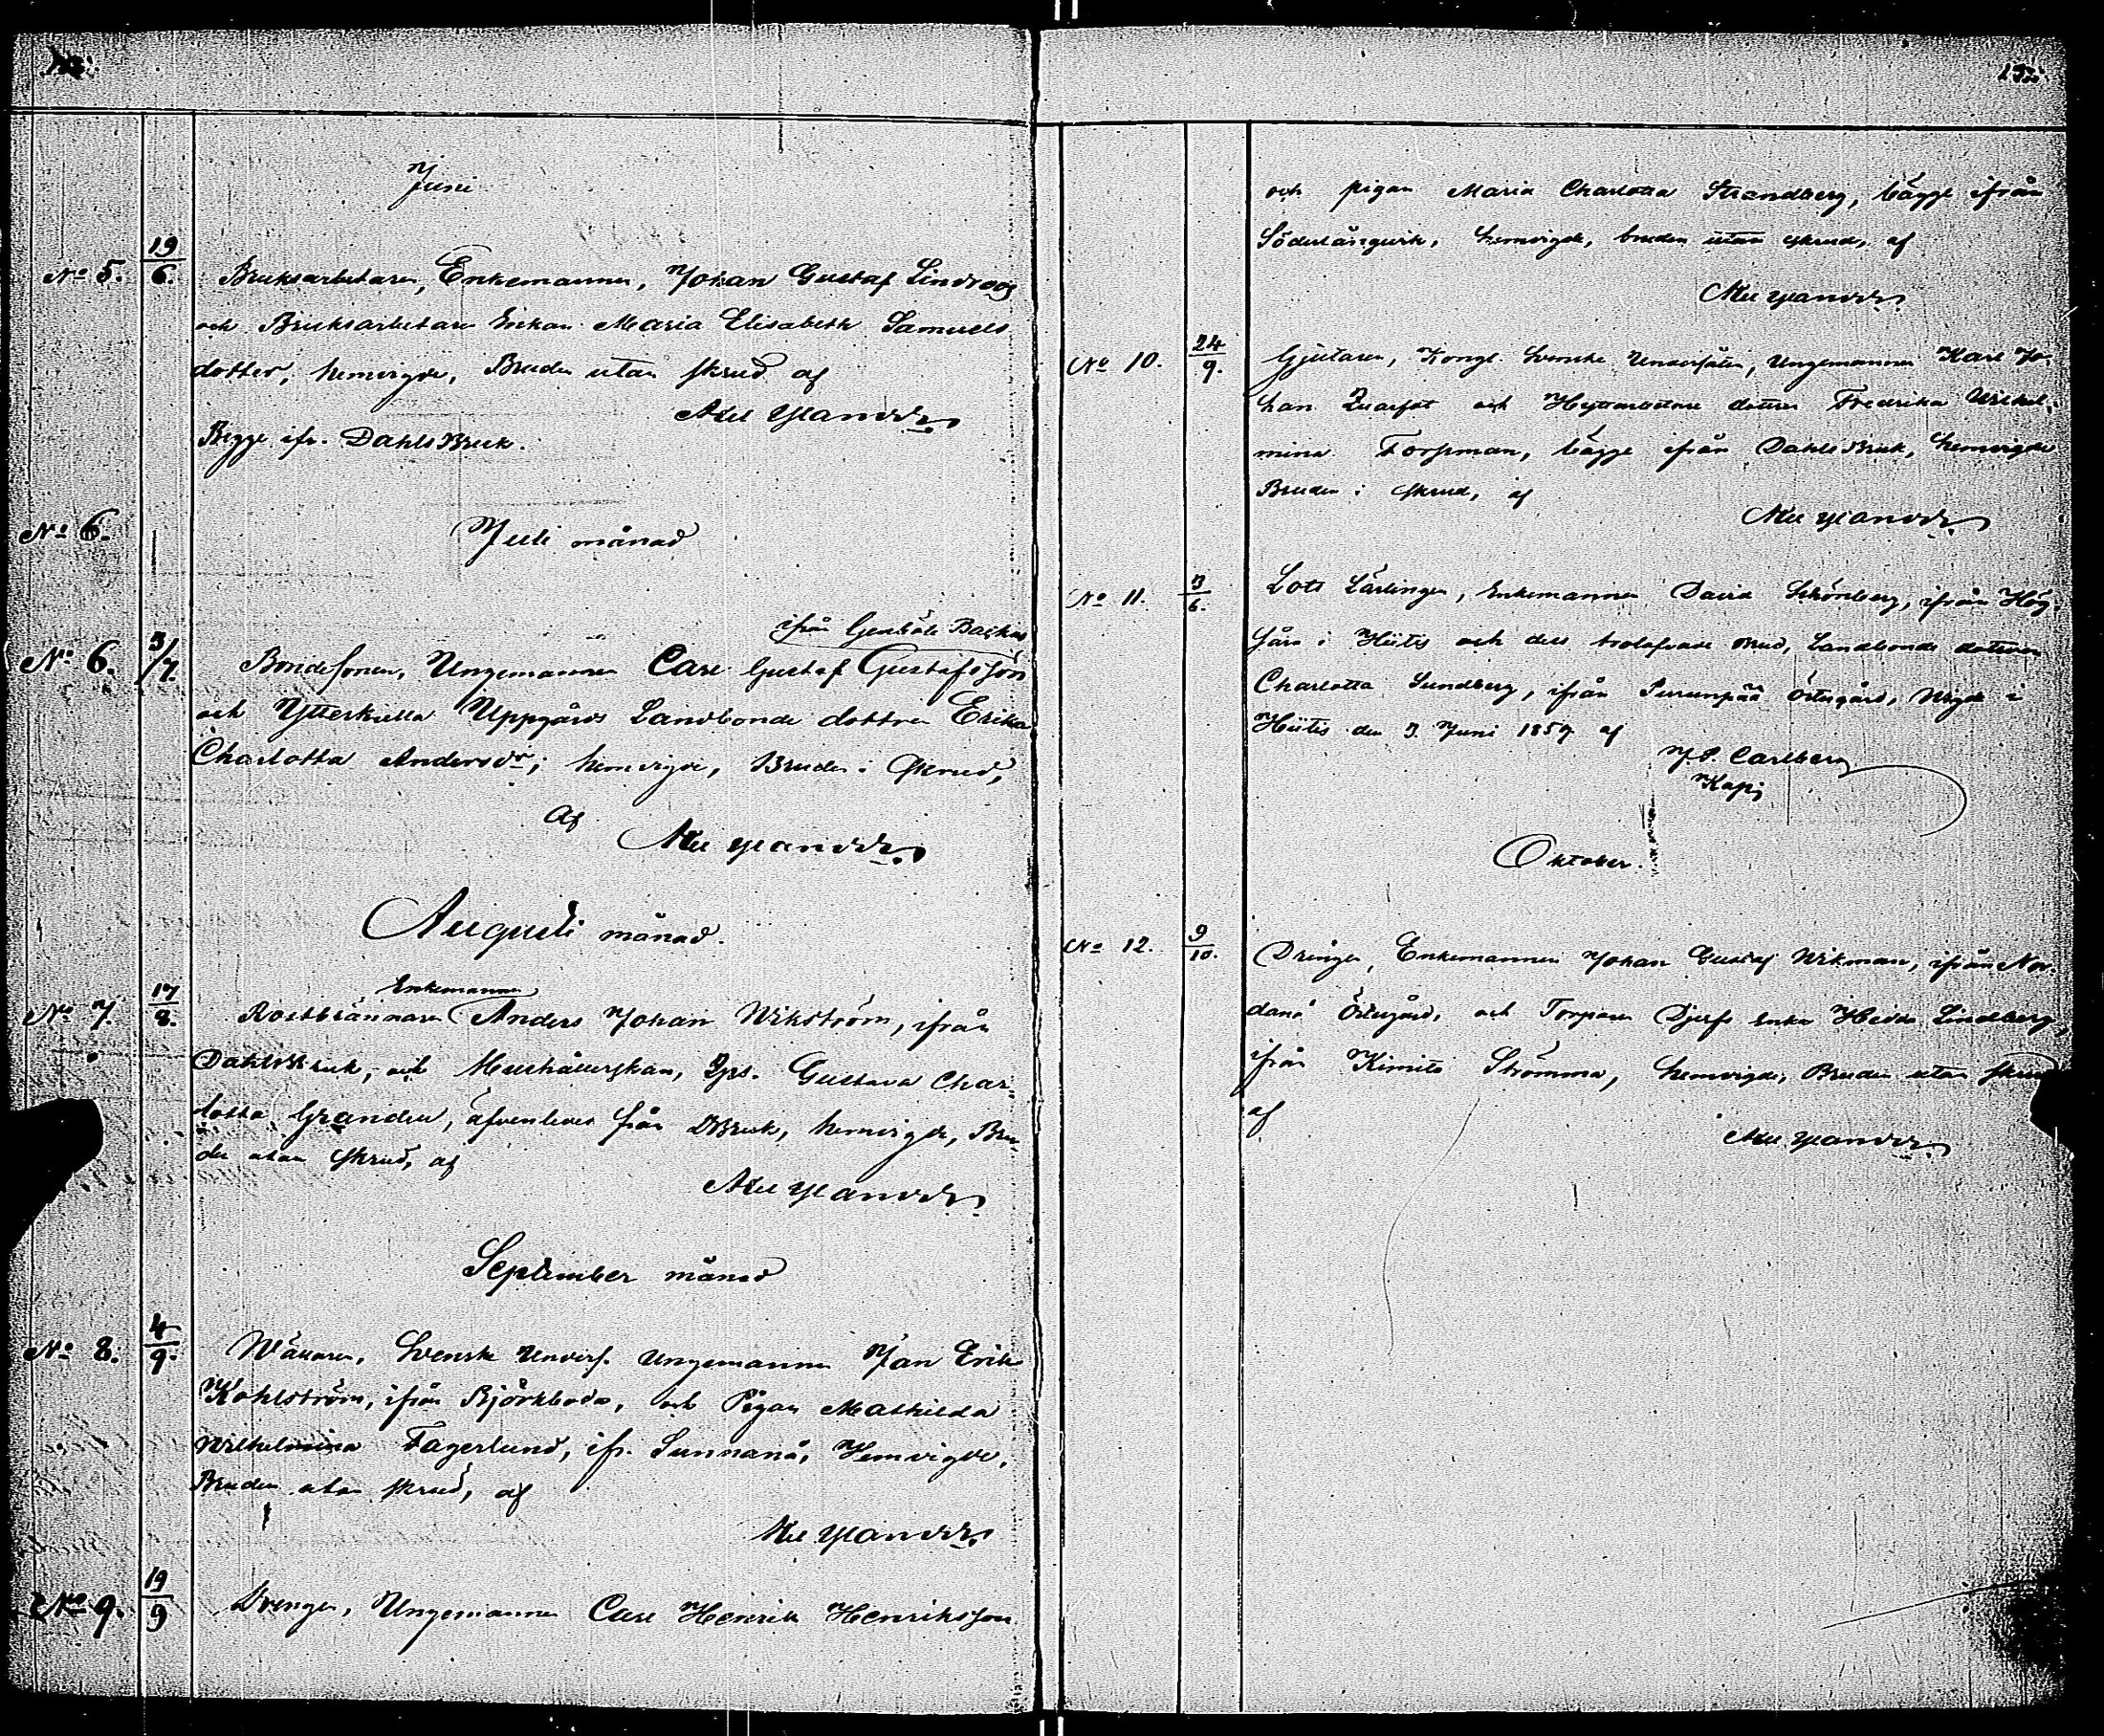 Juni
No 5. 19/6. Bruksarbetaren, Enkemannen, Johan Gustaf Lindroos
och Bruksarbetare Enkan Maria Elisabeth Samuels
dotter, hemvigde, Bruden utan skrud af
Axel Welandr
Begge ifr. Dahls Bruk.
No 6.
Juli månad
ifrån Genböle Backas
No 6. 3/7. Bondesonen, Ungemannen Carl Gustaf Gustafsson
och Ytterkulla Uppgårds Landbonde dottren Erika
Charlotta Andersdr; hemvigde, Bruden i skrud,
af
Augusti månad.
Enkemannen
No 7. 17/8. Rostbrännaren Anders Johan Wikström, ifrån
Dahlsbruk, och Gustava Char
lotta Grander, äfvenledes från DBruk, hemvigde, Bru
den utan skrud, af
September månad
No 8. 4/9. Svenske Unders. Ungemannen Jan Erik
Kohlström, ifrån Björkboda, och Pigan Mathilda
Wilhelmina Fagerlund, ifr. Sunnanå, Hemvigde,
Bruden utan skrud, af
No 9. 19/9 Drengen, Ungemannen Carl Henrik Henriksson
och pigan Maria Charlotta Strandberg, bägge ifrån
Söderlångvik, hemvigde, bruden utan skrud, af
No 10. 24/9. Gjutaren, Kongl. Svenske Undersåten, Ungemannen Karl Jo
han och Hyttarbetare dottren Fredrika Wilhel
mina Forsman, bägge ifrån Dahls Bruk, hemvigde
Bruden i skrud, af
No 11. 3/6. Lots Lärlingen, Enkemannen David Schönberg, ifrån Hög
såra i Hitis och dess trolofvade brud, Landbonde dottren
Charlotta Sundberg, ifrån Purunpää Östergård, Wigde i
Hitis den 3 Juni 1859 af
J. P. Carlberg
Kapj
Oktober.
No 12. 9/10. Drängen, Enkemannen Johan Gustaf Wikman, ifrån Nor
danå Östergård, och Torparen Djerfs Enka Hedda Lindberg,
ifrån Kimito Strömma, hemvigde, Bruden utan skrud
af